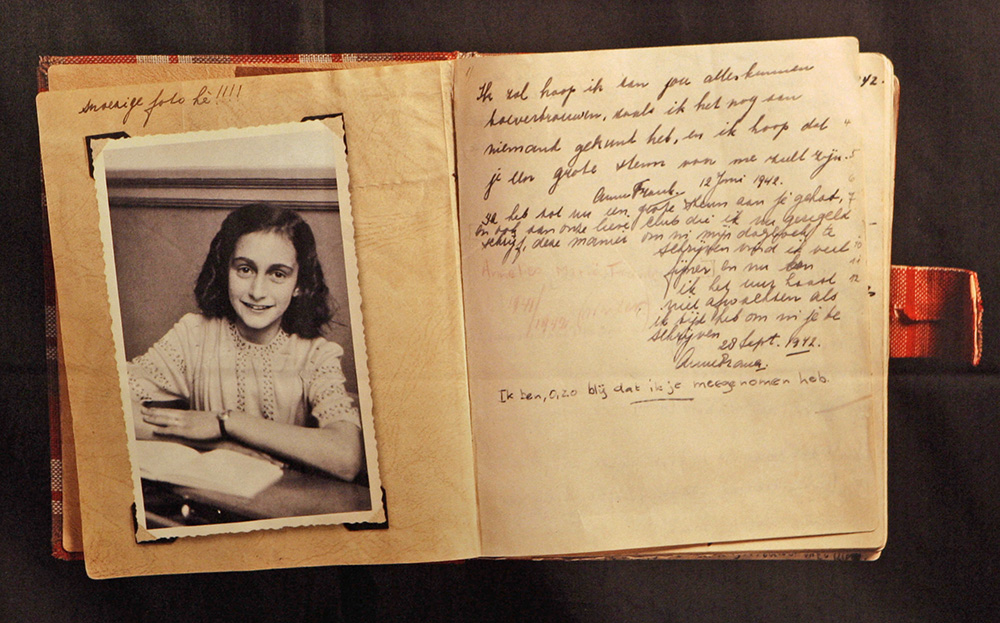 snoezige foto hè!!!!
Ik zal hoop ik aan jou alles kunnen
toevertrouwen, zoals ik het nog aan
niemand gekunt heb, en ik hoop dat
je een grote steun van me zult zijn.
Anne Frank. 12 Juni 1942.
Ik heb tot nu een grote steun aan je gehad,
en ook aan onze lieve club die ik nu geregeld
schrijf, deze manier om in mijn dagboek te
schrijven vind ik veel
fijner en nu kan
ik het uur haast
niet afwachten als
ik tijd heb om in je te
schrijven.
28 Sept. 1942.
Anne Frank.
Ik ben, o, zo blij dat ik je meegenomen heb.
42.